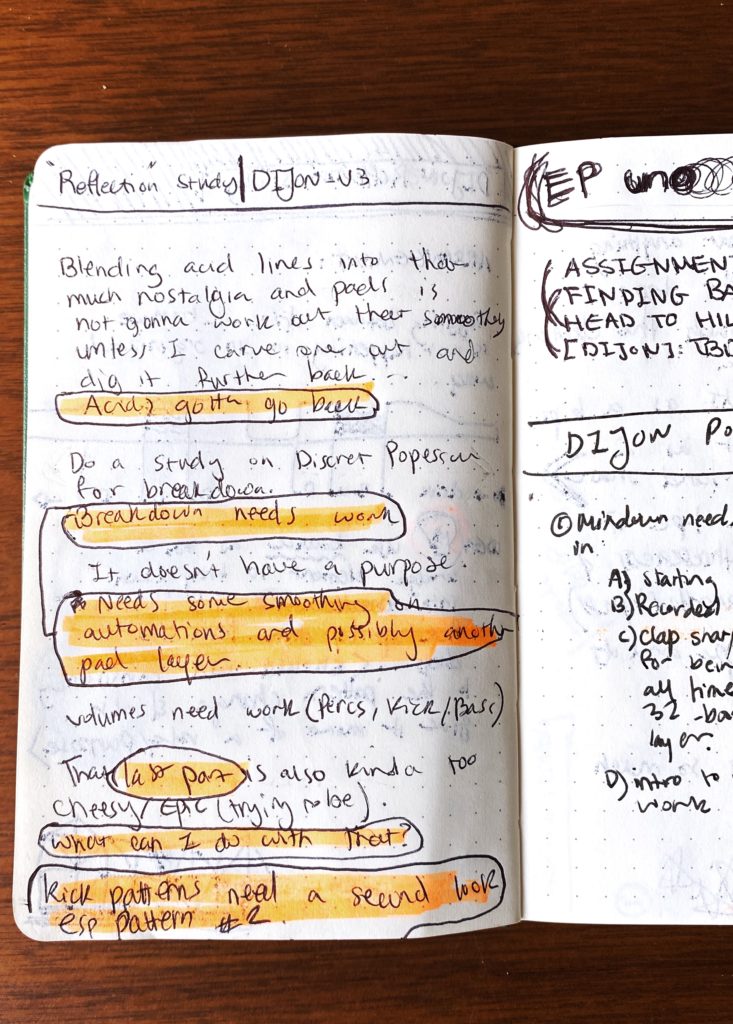 "Reflection" study | DIJON_V3
Blending acid lines into that
much nostalgia and pads is
not gonna work out that smoothly
unless I carve one out and
dig it further back
Acids gotta go back
Do a study on Discret Popescu
for breakdown.
Breakdown needs work
It doesn't have a purpose.
Needs some smoothing on
automations and possibly another
pad layer.
volumes need work (Percs, Kick/Bass)
That last part is also kinda too
cheesy/Epic (trying to be).
What can I do with that?
Kick patterns need a second look
esp pattern #2.
EP uno
ASSIGNMENT
FINDING BA
HEAD TO HIL
[DIJON]: TBD
DIJON PO
Mindown need
in:
A) starting
B) Recorded
C) Clap snar
for bein
all time
32 -ba
layer.
D) intro to
work